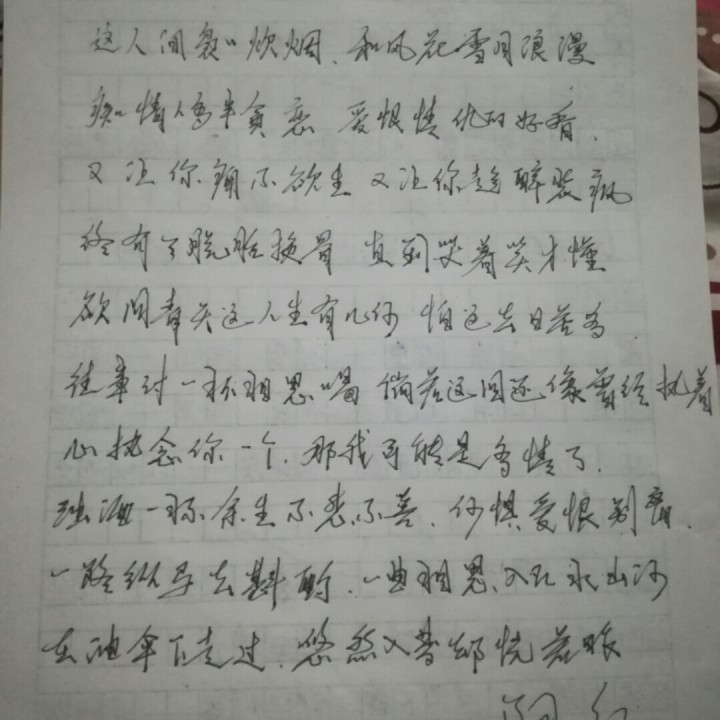 这人间袅袅炊烟、和风花雪月浪漫
痴情人多半贪恋 爱恨情仇的好看.
又让你痛不欲生 又让你趁醉装疯
终有了脱胎换骨 直到哭着笑才懂
欲问青天这人生有几何 怕这去日苦多
往事对一杯相思喝 倘若这回还像曾经执着
心执念你一个、那我可能是多情了.
浊酒一杯 余生不悲不喜、何惧爱恨别离.
一路纵马去斟酌、一曲相思入孔水山河
在油伞下走过、悠然入梦却恍若昨